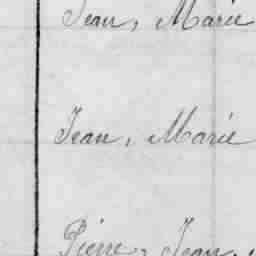 Jean, Marie
Jean, Marie
Pierre, Jean,